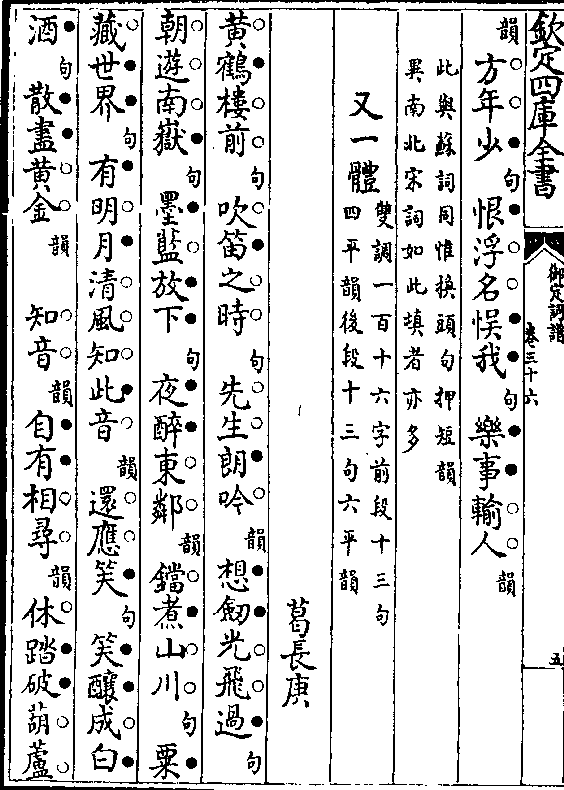 欽定四庫全書
御定詞譜
卷三十六
五
韻方年少句恨浮名悮我句樂事輸人韻
此與蘇詞同惟換頭句押短韻
異南北宋詞如此填者亦多
又一體雙調一百十六字前段十三句
四平韻後段十三句六平韻
葛長庚
黄鶴樓前句吹笛之時句先生朗吟韻想劒光飛過句
朝遊南嶽句墨籃放下句夜醉東鄰韻鐺煮山川句粟
藏世界句有明月清風知此音韻還應笑句笑釀成白
酒句散盡黄金韻知音韻自有相尋韻休踏破葫蘆